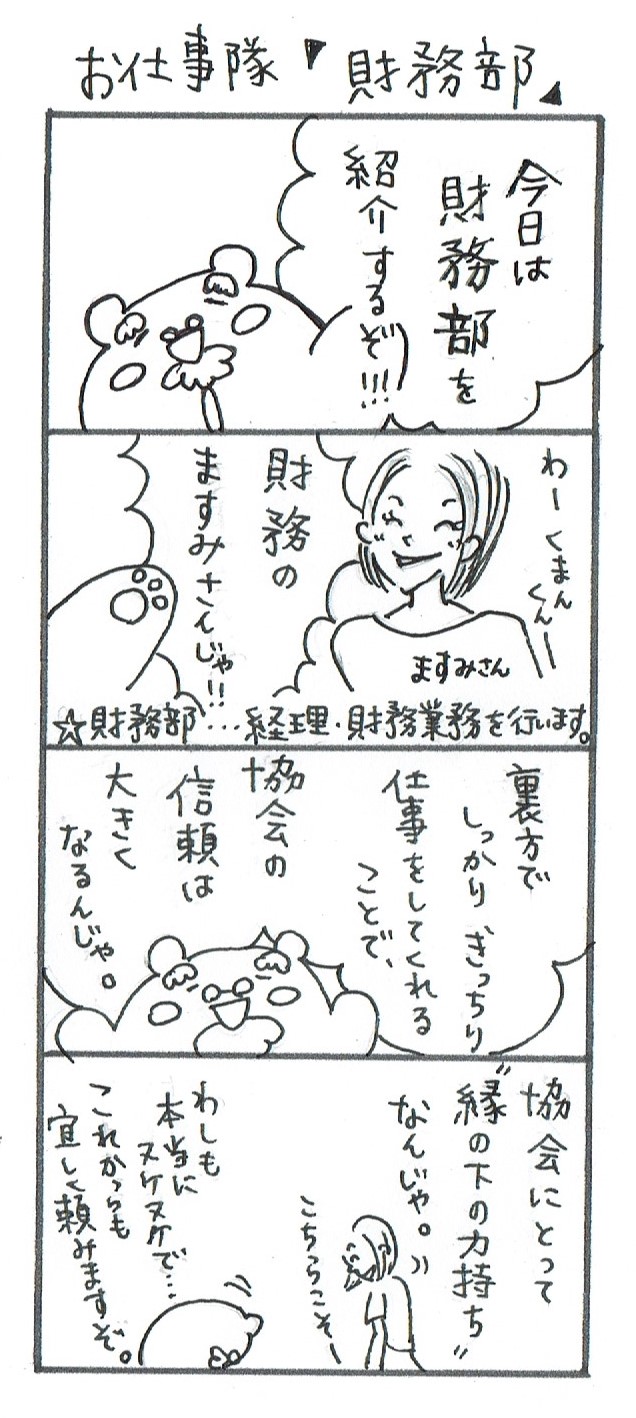 お仕事隊 「財務部」
今日は
財務部を
紹介するぞ!!!
わーくまん
くんー
ますみさん
財務の
ますみさんじゃ!!
☆財務部…経理・財務業務を行います。
裏方で
しっかりきっちり
仕事をしてくれる
ことで、
協会の
信頼は
大きく
なるんじゃ。
協会にとって
"縁の下の力持ち"
なんじゃ。
こちらこそー
わしも
本当に
ヌケヌケで…
これからも
宜しく頼みますぞ。